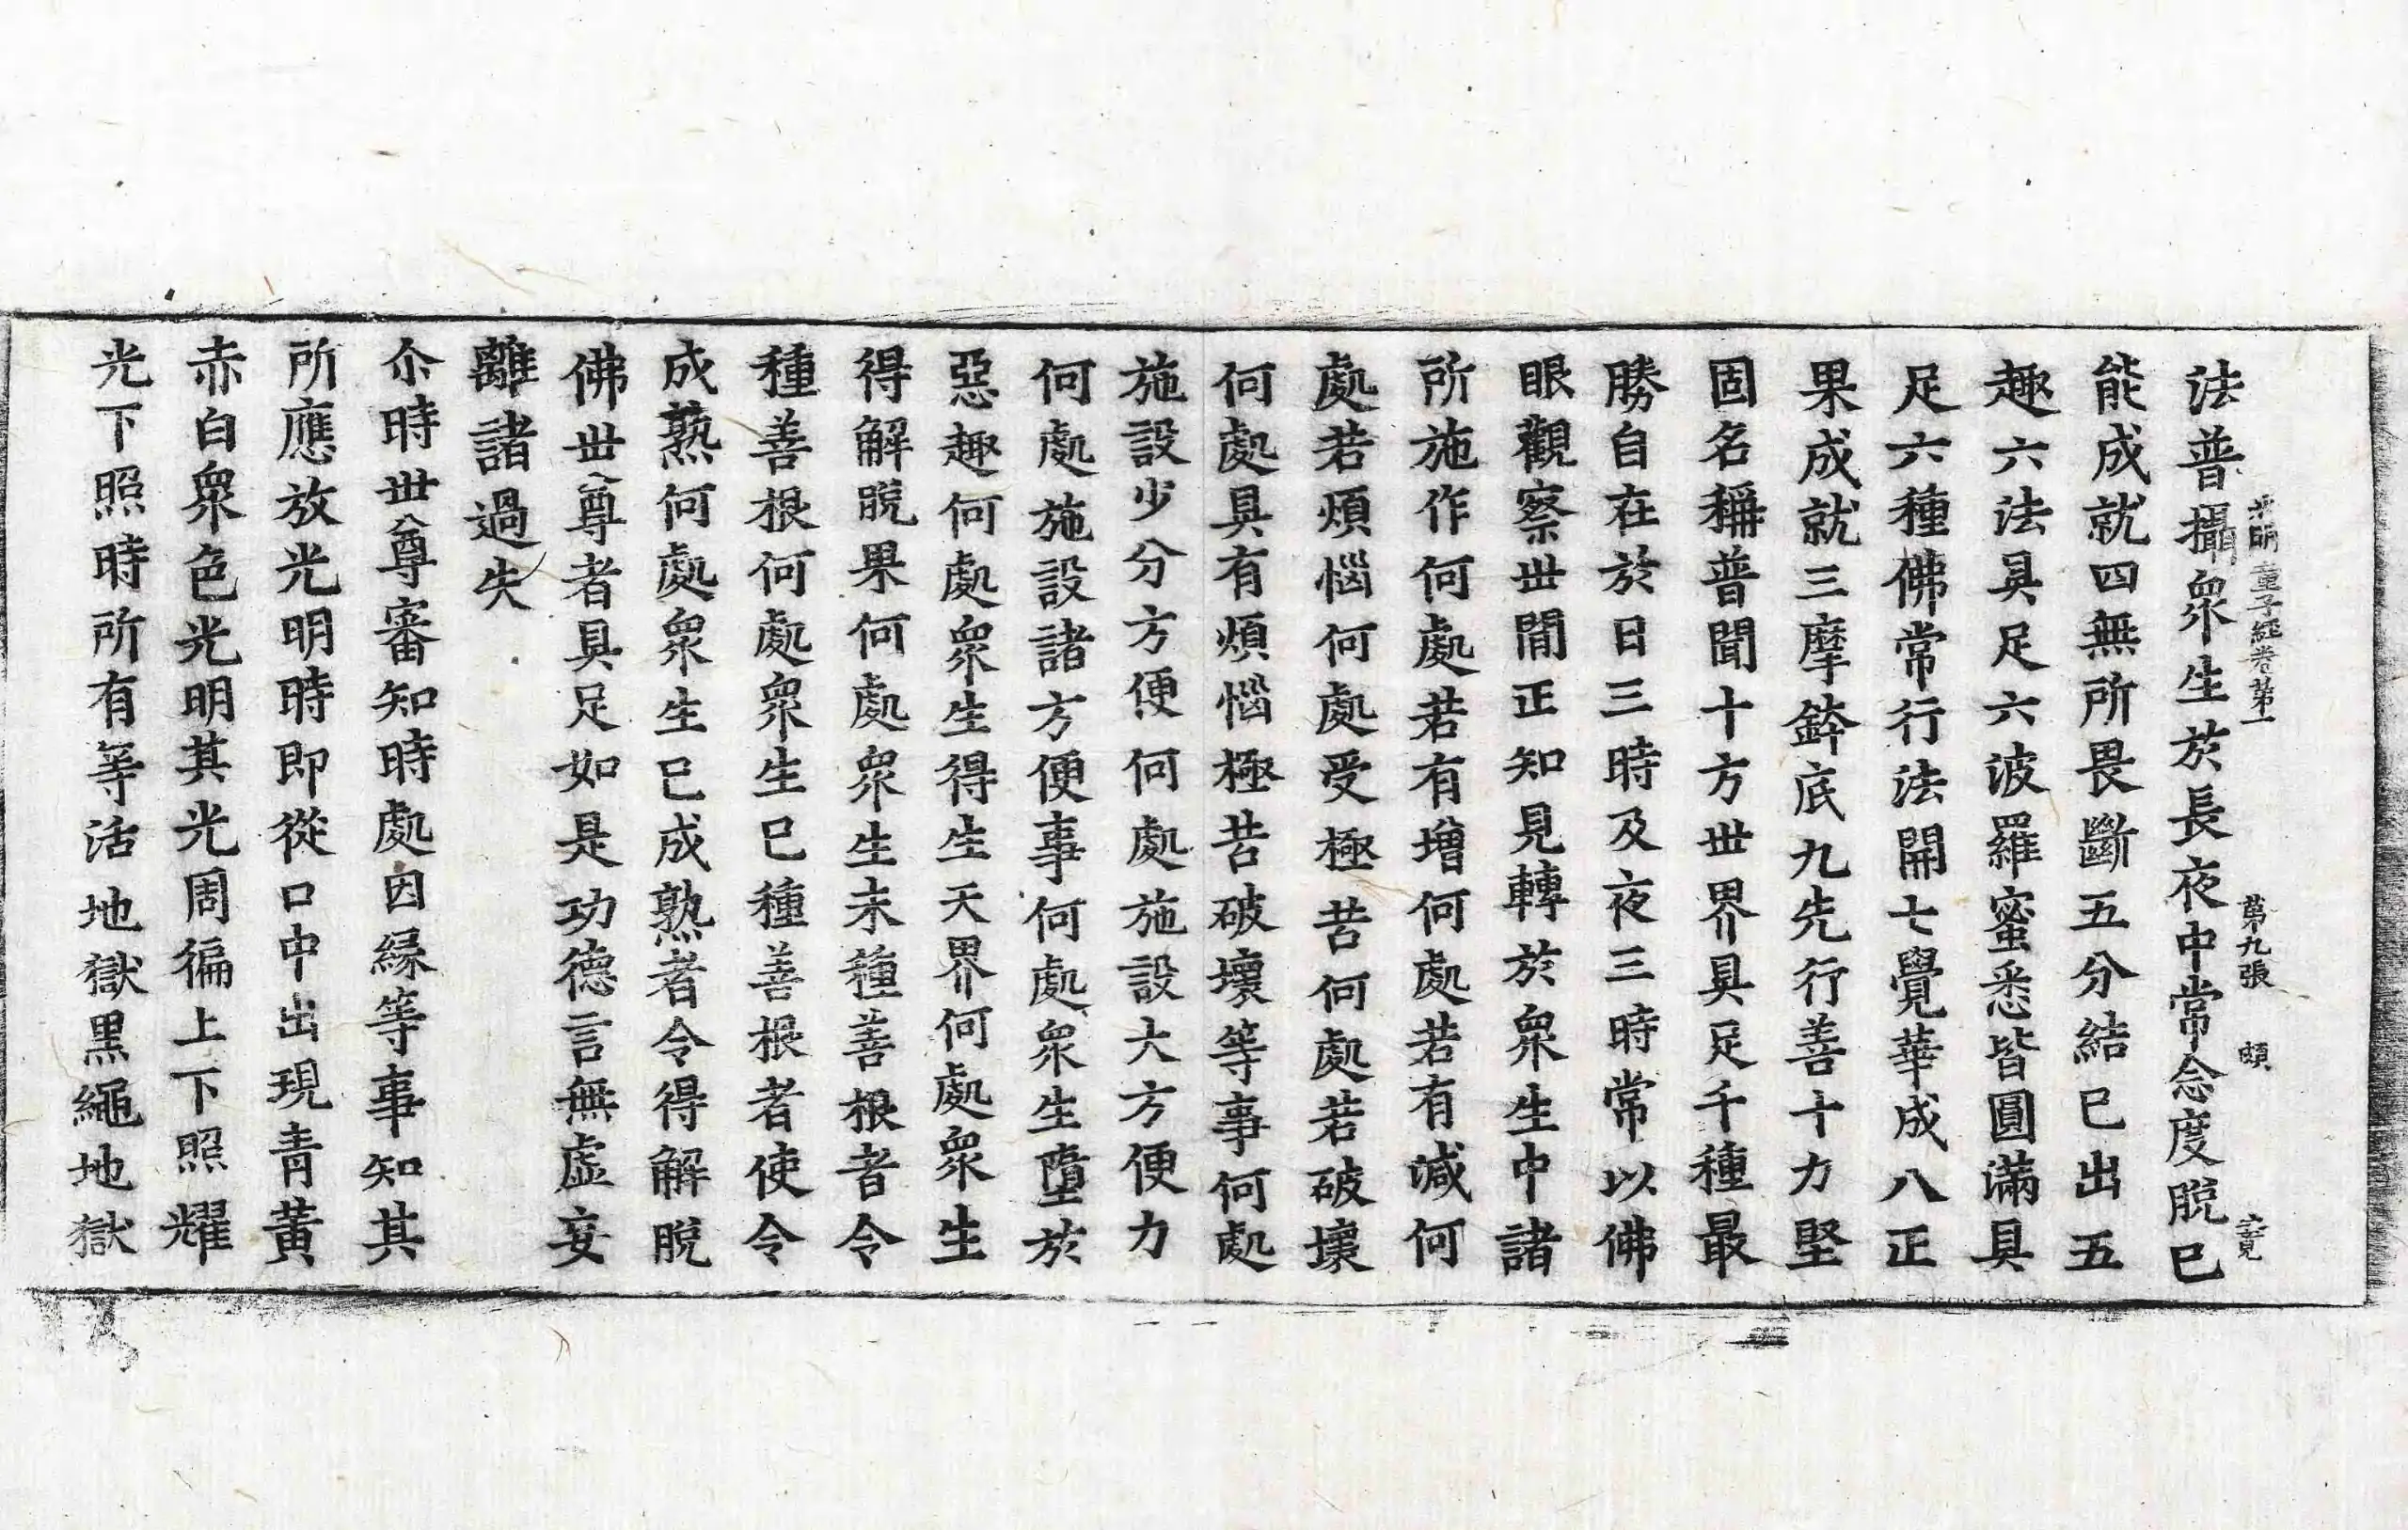 光明童子經卷第一 第九張 頗
法普攝衆生於長夜中常念度脫已
能成就四無所畏斷五分結已出五
趣六法具足六波羅蜜悉皆圓滿具
足六種佛常行法開七覺華成八正
果成就三摩鉢底九先行善十力堅
固名稱普聞十方世界具足千種最
勝自在於日三時及夜三時常以佛
眼觀察世間正知見轉於衆生中諸
所施作何處若有增何處若有減何
處若煩惱何處受極苦何處若破壞
何處具有煩惱極苦破壞等事何處
施設少分方便何處施設大方便力
何處施設諸方便事何處衆生墮於
惡趣何處衆生得生天界何處衆生
得解脫果何處衆生未種善根者令
種善根何處衆生已種善根者使令
成熟何處衆生已成熟者令得解脫
佛世尊者具足如是功德言無虛妄
離諸過失
尒時世尊審知時處因緣等事知其
所應放光明時即從口中出現青黃
赤白衆色光明其光周徧上下照耀
光下照時所有等活地獄黑繩地獄